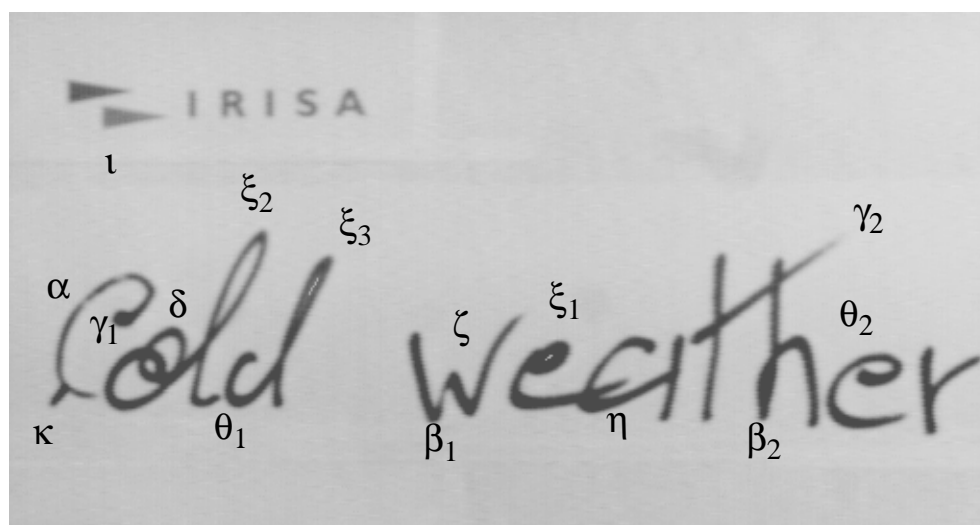 IRISA
ι
ξ2
ξ3
γ2
α
γ1
δ
ζ
ξ1
θ2
Cold weather
κ
θ1
β1
η
β2